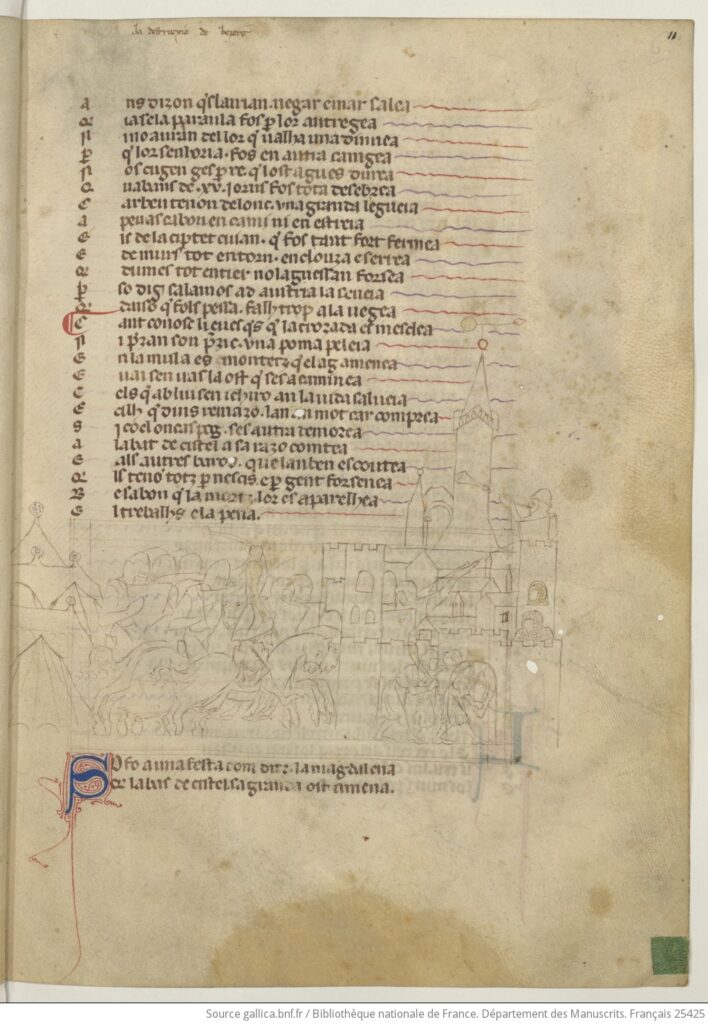 la destruxio de bezers
11
Ans dizon q̄s laixan negar e mar salea
Qia sela paraula fos p̄ lor autregea
No auran de llor q̄ ualha una dinnea
P q̄ lor senhoria fos en autra camgea
Nos cugen ges p̄ re q̄ lost agues durea
Q uabans de .xv. iorns fos tota desebrea
C ar ben tenon de lonc una granda legueia
A penas cabon en cami ni en estreia
E is de la ciptet cuian q̄ fos tant fort fermea
E de murs tot entorn enclouza e serrea
Q dun mes tot entier no laguessan forsea
P so dig salamos ad austria la seneia
Q daiso q̄ fols pessa falh trop a la uegea
C ant conosc li euesq̄s q̄ la crozada es mesclea
N i p̄zan son p̄zic una poma peleia
E n la mula es montetz q̄ el ag amenea
E uai sen uas la ost q̄ ses acaminea
C els q̄ ab lui sen ichiro an la uida saluea
E cilh q̄ dins remazo lan mot car compresa
A labat de cistel a sa razo comtea
E als autres baros que lan ben escoutea
Q ils teno totz p̄ nescis e p̄ gent forsenea
B e sabon q̄ la mort lor es aparelhea
E l trebalhs e la pena.
So fo a una festa com ditz la magdalena
Qe labas de cistel sa granda ost amena.
Source gallica.bnf.fr / Bibliothèque nationale de France. Département des Manuscrits. Français 25425